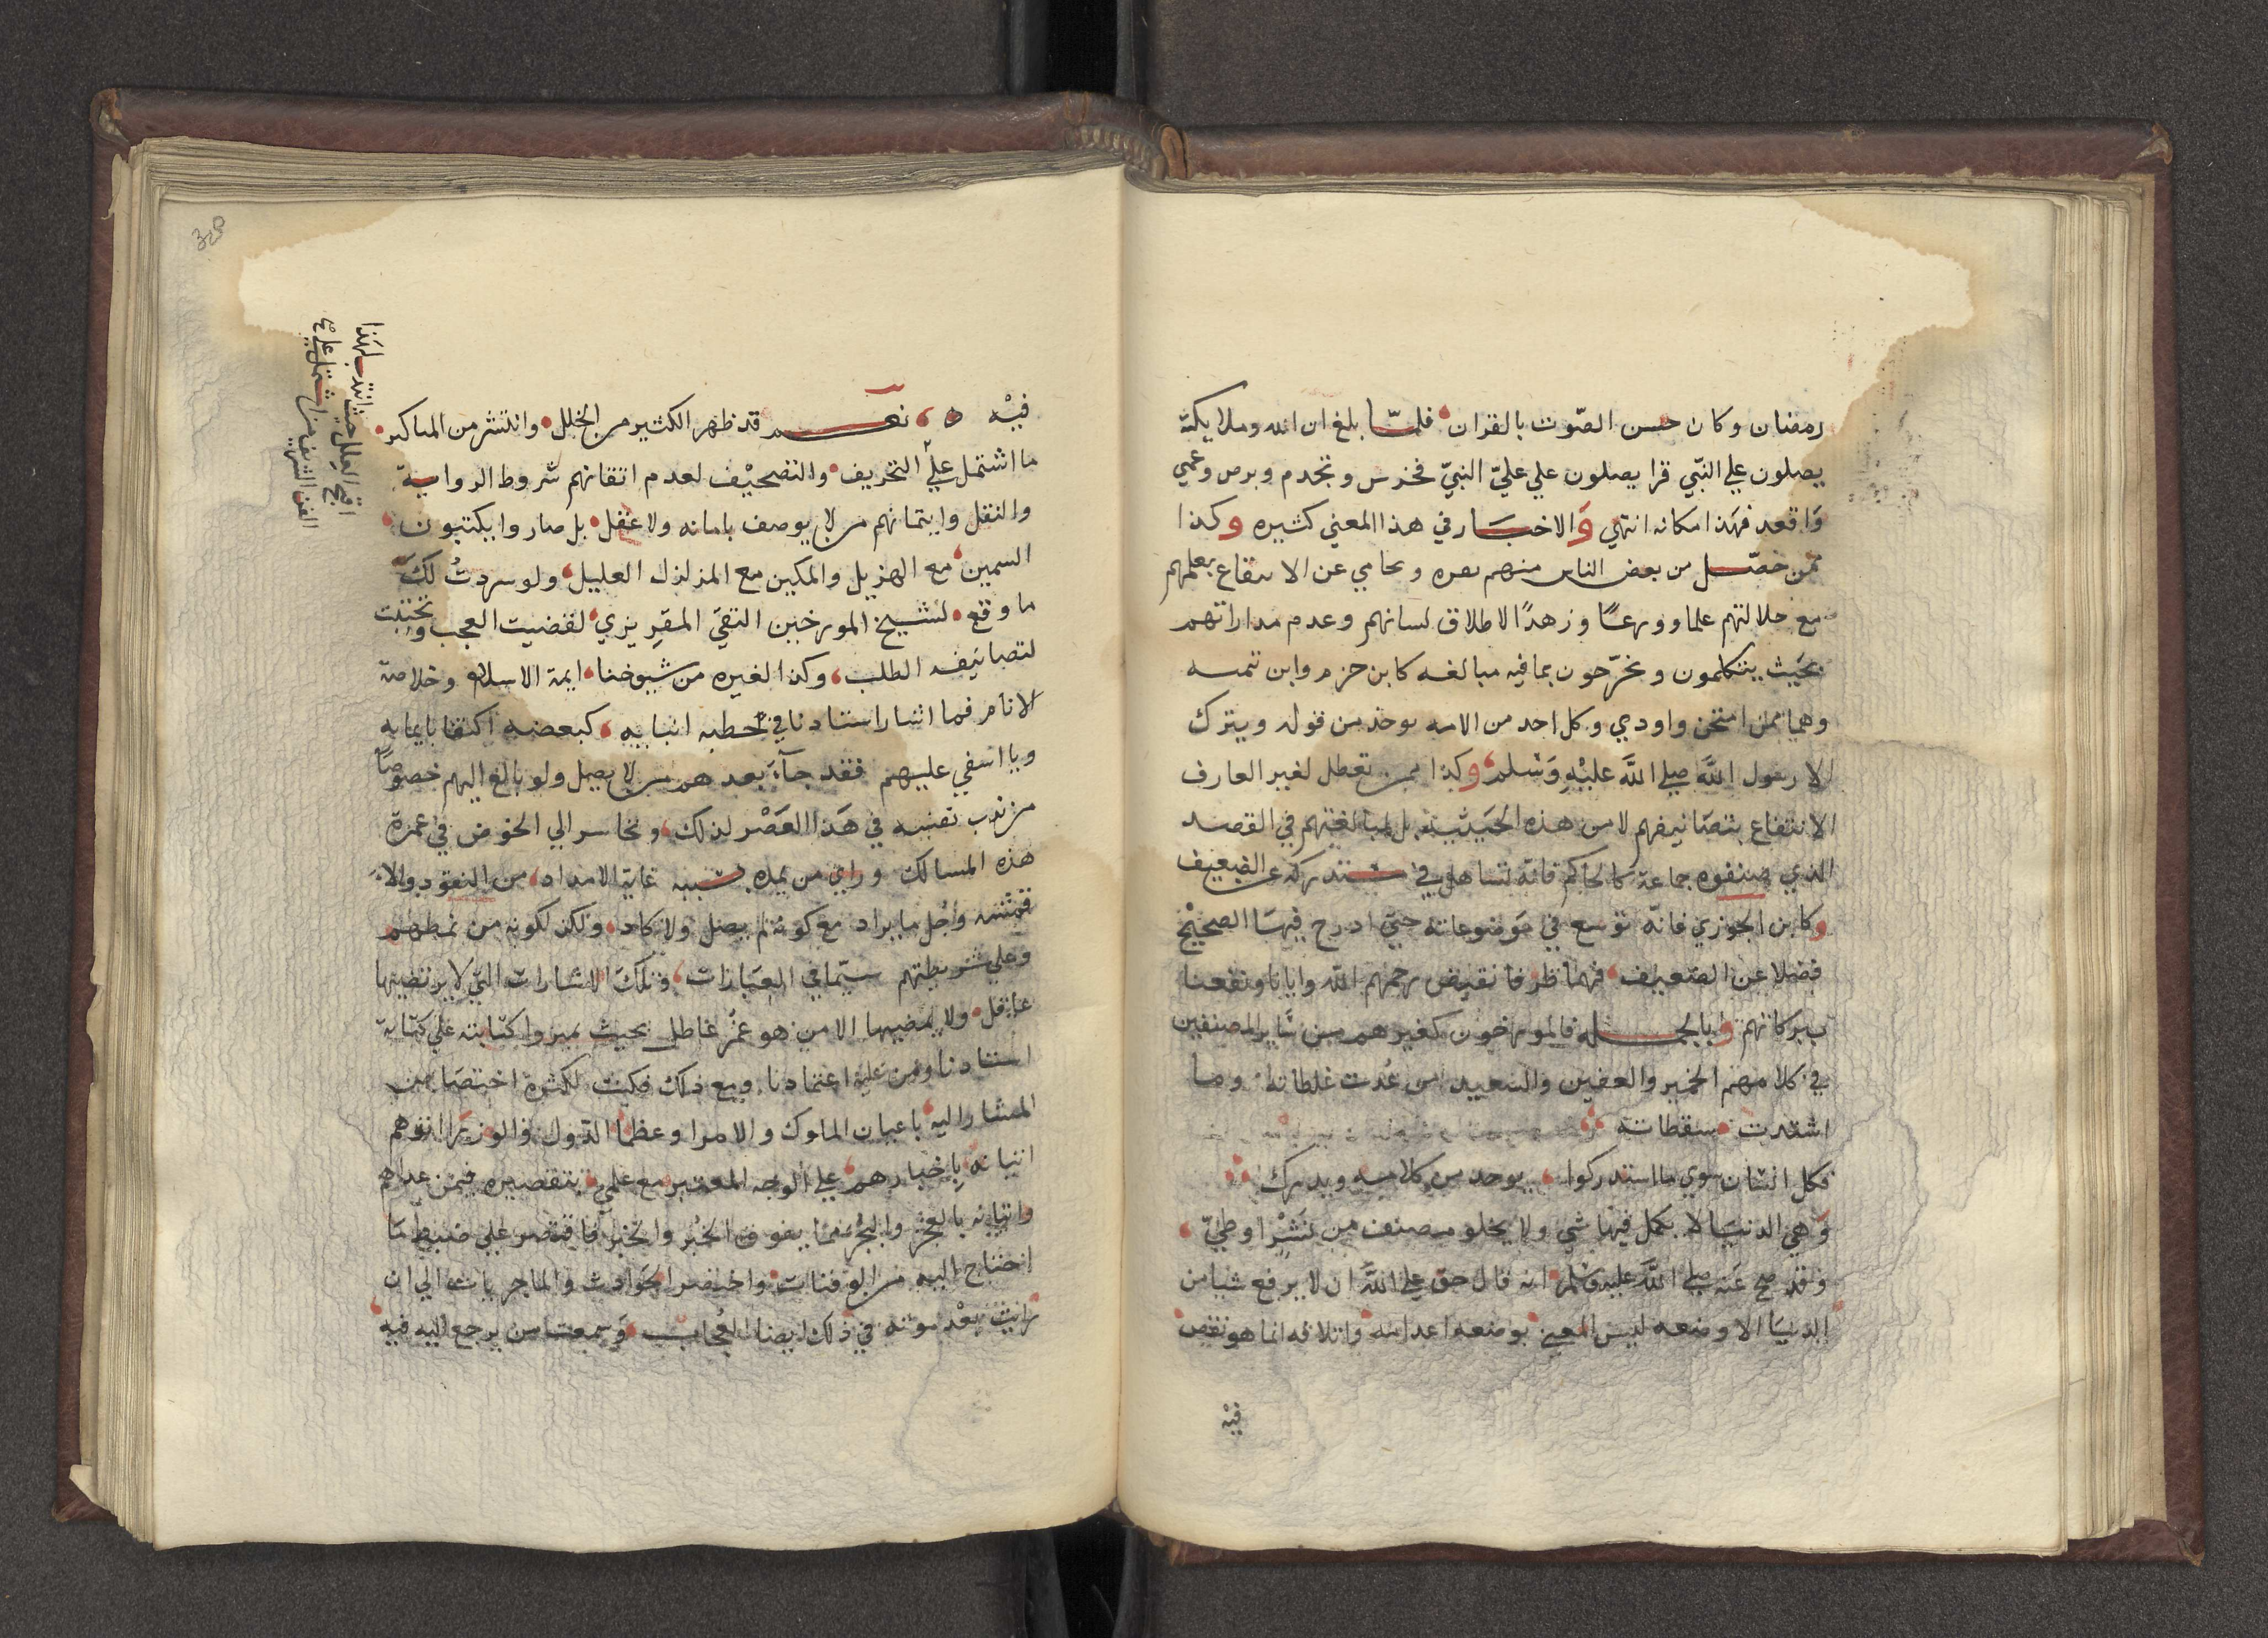 رمضان وكان حسن الصّوت بالقران فلمّا بلغ ان الله وملايكته
يصلون علي النّبي قرا يصلون علي عليّ النبيّ فخرس وتجدم وبرص وعمي
وَاقعد فهَذا مكانه انتهي وَالاخبَار في هذا المعني كثيره وكذا
ممّن حصّل من بعض الناس منهم نفره وتحامي عن الانتفاع بعلمهم
مع جلالتهم علما وورعًا وزهدًا لاطلاق لسانهم وعدم مداراتهم
بحَيث يتكلمون ويخرّحون بما فيه مبالغه كابن حزم وابن تيميه
وهما ممّن امتحن واودي وكل احد من الامه يوخذ من قوله ويترك
الا رسول اللَّه صلي اللَّه عليْهِ وَسَلم وكذا ممن تعطل لغير العارف
الانتفاع بتصَانيفهم لا من هذه الحَيثيته بل لمبالغتهم في القصد
الذي صنفوه جماعة كالحاكم فانه تساهل في مستدركه عن الضعيف
وكابن الجوزي فانّه توسع في مَوضوعاته حتي ادرج فيهَا الصحيْح
فضلا عن الضعيف فهما طرفا نقيض رحمهم الله وايانا ونفعنا
ببركاتهم وبالجمله فالمورخون كغيرهم من سَّاير المصنفين
في كلامهم الخمير والعفين والسعيد من عُدت غلطاته وما
اشتدت سقطاته
فكل انسان سوي ما استدركوا يوخد من كلامه ويدرك
وَهي الدنيَا لا يكمل فيها شي ولا يخلو مصنف من نَشْرٍ او طيّ
وقد صح عَنه صلي اللَّه عليه وسَلم انه قال حق علي اللَّه ان لا يرفع شيا من
الدنيَا الا وضعه ليس المعني بوضعه اعدامه واتلافه انما هو نقص
فيْه
فيْه نعم قد ظهر الكثير من الخلل وانتشر من المناكير
ما اشتمل علي التحريف والتصحيْف لعدم اتقانهم شروط الرواية
والنقل وايتمانهم من لا يوصف بامانه ولا عقل بل صاروا يكتبون
السمين مع الهزيل والمكين مع المزلزل العليل ولو سردتُ لك
ما وقع لشيخ المورخين التقي المقريزي لقضيت العجب وتجنبت
لتصانيفه الطلب وكذا لغيره من شيوخنا ايمة الاسلام وخلاصة
الانام فما اشار استادنا في خطبه انبايه كبعضه اكتفا بايمايه
ويا اسفي عليهم فقد جآءَ بعدهم من لا يصل ولو بالغ اليهم خصوصًا
من ندب نفسه في هَذا العَصْر لذلك وتجاسر الي الخوض في غمرة
هذه المسالك وراي من يمده بسببه غاية الامداد من النقود والا
قمشه وجُل ما يراد مع كونه لم يصل ولا كاد ولكن لكونه من نمطهم
وعلي شريطتهم سيّما في العبَارات وتلكَ الاشارات التي لا يرتضيها
عاقل ولا يمضيها الا من هو غمرٌ غاطل بحيث ميزوا كتابته علي كتابة
استادنا ومن عليْه اعتمادنا ومع ذلك فكيت لكثرة اختصَاص
المشار اليه باعيان الملوك والامرا وعظما الدّول والوزرَا انوهم
اتيانه باخبارهم علي الوجه المعتبر مع علمي بتقصيره فيمن عداهم
واتيانه بالعجَر والبُجَر فما يفوق الخُبْر والخبَر فاقتصر علي ضبط مَا
احتاج اليه من الوفيات واختصر الحَوادث والماجريات الي ان
رايت بعْد موته في ذلك ايضا العُجاب وَسمعت من يرجع اليه فيه
اتجه العليل حيث انتدب لهَذا
الفن الشريف من اشتمل علي